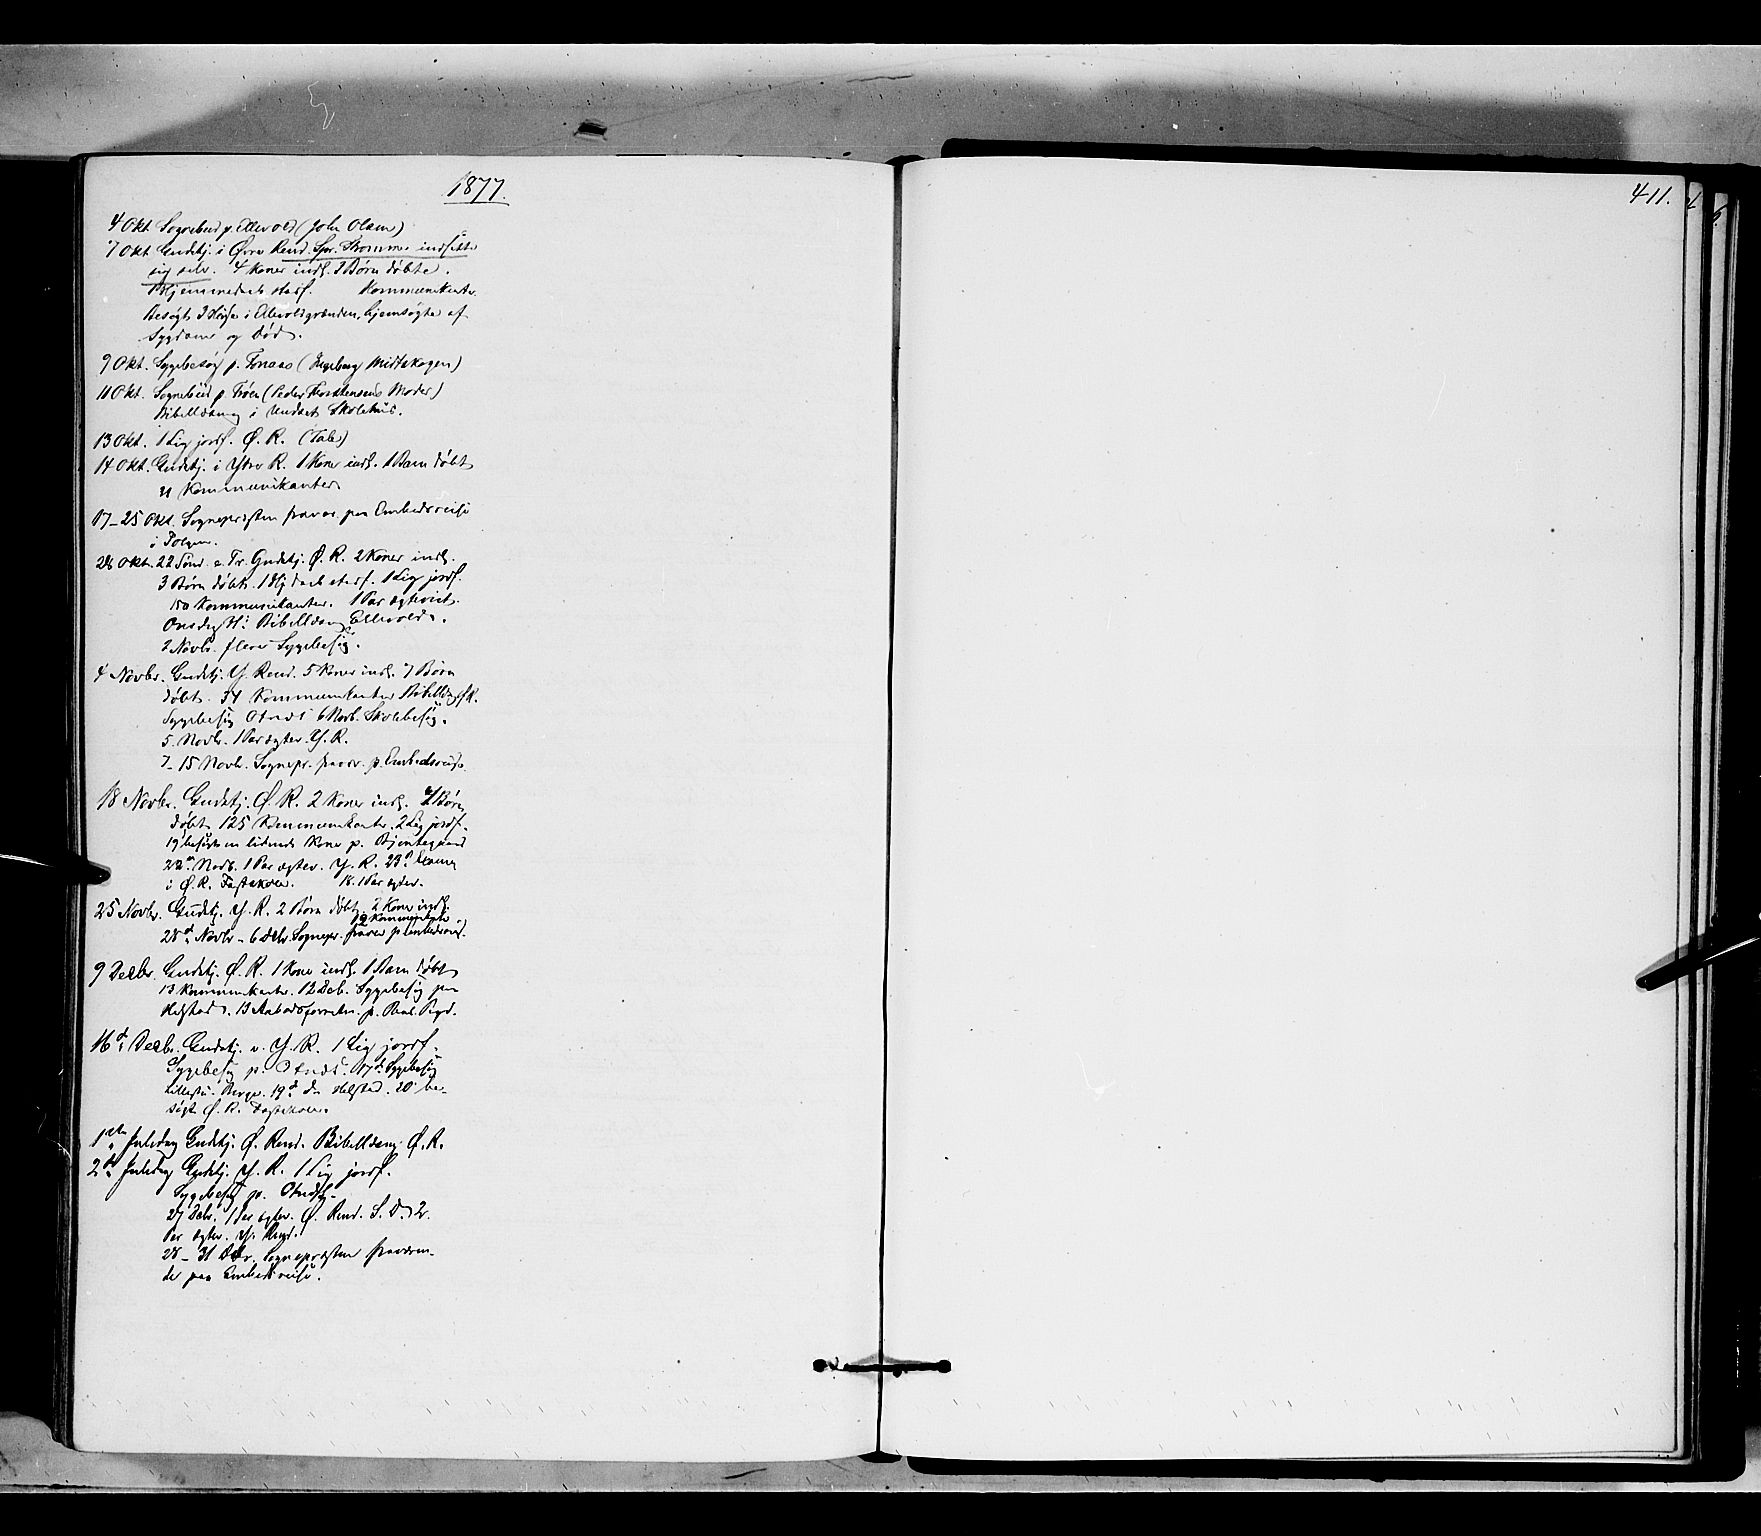 1877.
411.
4 Okt. Sognebud p. Ellevold (John Olsen)
7 Okt. Gudstj. i Øvre Rend. Spr. Thomme indsatte
sig selv. 4 Koner indl. 3 Børn døbte.
1 Hjemmedaab stadf. Kommunikanter.
Besøgt 3 Huse i Ellevoldgrænden, hjemsøgte af
Sygdom og Død.
9 Okt. Sygebesøg p. (Ingeborg Midtskogen)
11 Okt. Sognebud p. (Peder Thorstensens Moder)
Bibellæsning i Undset Skolehus.
13 Okt. 1 Lig jordf. Ø. R.
14 Okt. Gudstj. i Ytre R. 1 Kone indl. 1 Barn døbt
21 Kommunikanter
17-25 Okt. Sognepræsten fravær. paa Embedsreise
i Tolgen.
28 Okt. 22 Sønd. e. Tr. Gudstj. Ø. R. 2 Koner indl.
3 Børn døbt. 1 Hj daab stadf. 1 Lig jordf.
150 Kommunikanter. 1 Par ægteviet.
Onsdag Bibellæsn. Ellevold.
2 Novbr. flere Sygebesøg.
4 Novbr. Gudstj. Y. Rend. 5 Koner indl. 7 Børn
døbt. 34 Kommunikanter Bibellæsn. Ø. R.
Sygebesøg Otnes 6 Novb. Skolebesøg.
5. Novbr. 1 Par ægtev. Y. R.
7-15 Novbr. Sognepr. fravær. p. Embedsreise.
18 Novbr. Gudstj. Ø. R. 2 Koner indl. Børn
døbt 125 Kommunikanter. 2 Lig jordf.
19 besøgt en lidende Kone p.
Novb. 1 Par ægtev. Y. R. 23d
i Ø. R. Fastskole. 18. 1 Par ægtev.
25 Novbr. Gudstj. Y. R. 2 Børn døbt, 2 Koner indl.
Kommunikanter
28d Novbr - 6 Debr. Sognepr. fravær p embedsreise.
9 Decbr. Gudstj. Ø. R. 1 Kone indl. 1 Barn døbt
13 Kommunikanter. 12 Deb. Sygebesøg paa
Helstad. 13 p.
16d Decbr. Gudstj. Y. R. 1 Lig jordf.
Sygebesøg p. Otnes. 17d Sygebesøg
Berge. 19d do Helstad. 20 be-
søgt Ø. R. Fastskole.
1ste Juledag Gudstj. Ø. Rend. Bibellæsn. Ø. R.
2den Juledag Gudstj. Y. R. 1 Lig jordf.
Sygebesøg p.
27 Debr. 1 Par ægtev. Ø. Rend. S. D. 2
Par ægtev. Y. Rend.
28-31 Dcbr. Sognepræsten fraværen-
de paa Embedsreise.